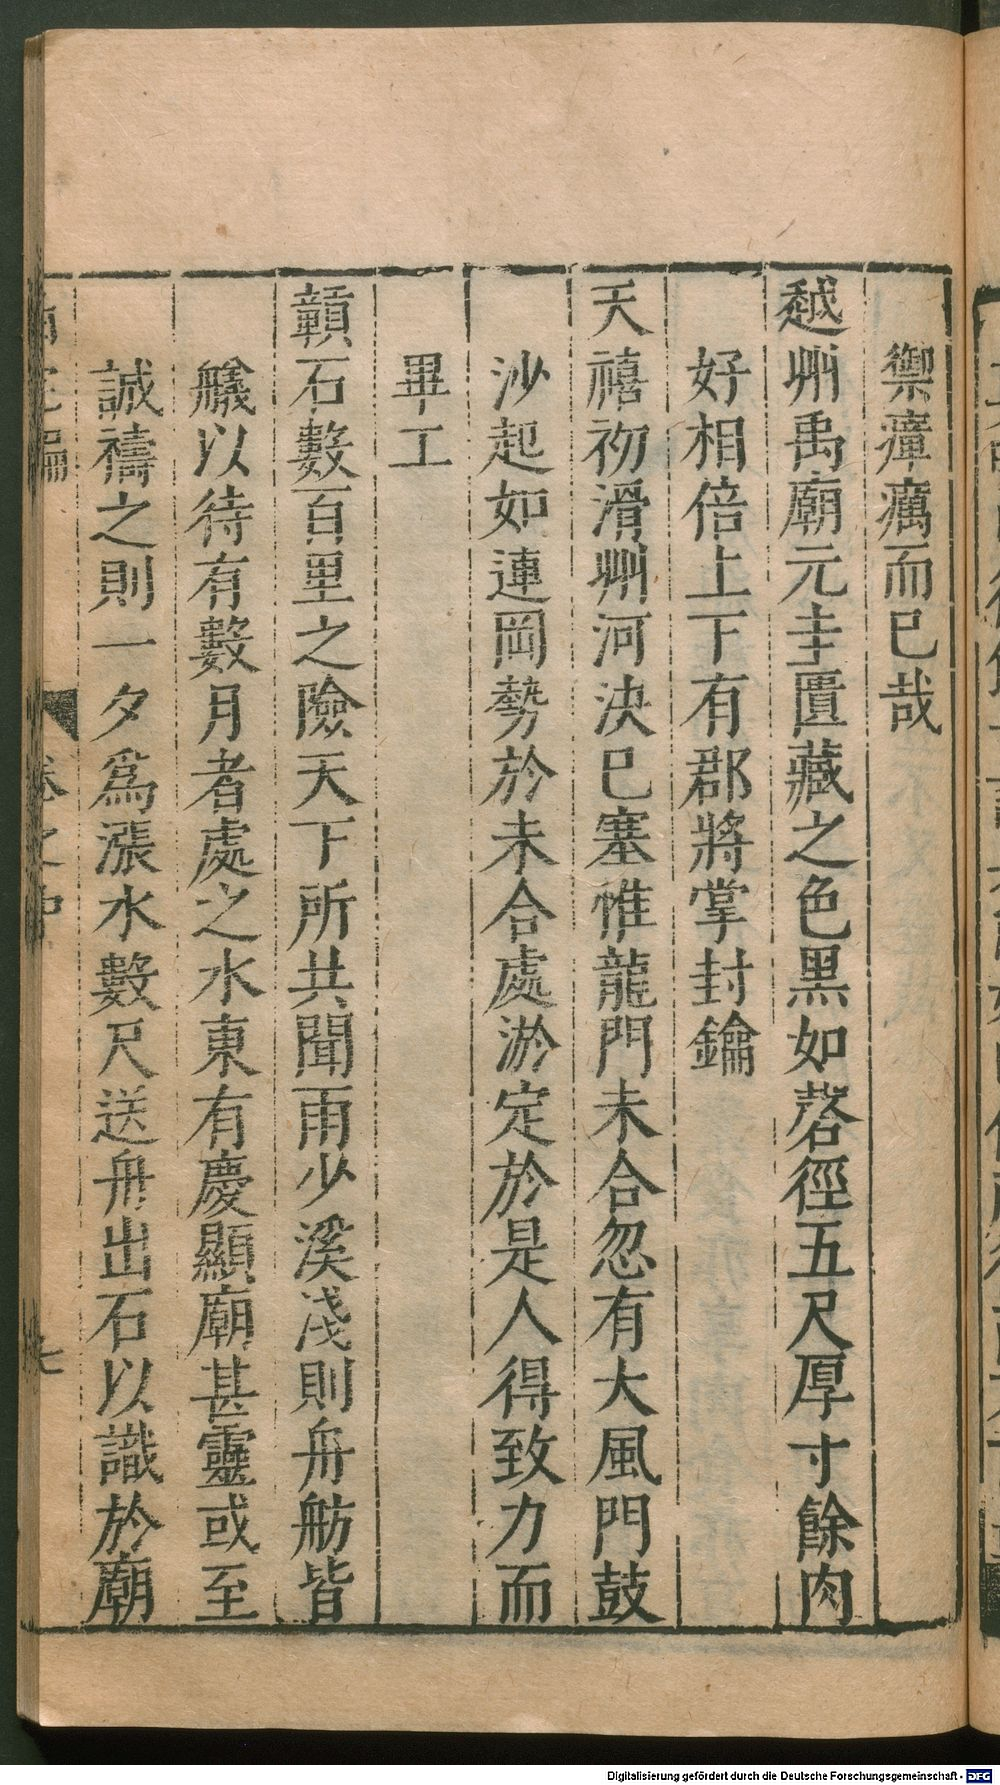 禦瘴癘而已哉
越州禹廟元圭匱藏之色黑如磬徑五尺厚寸餘肉
好相倍上下有郡將掌封鑰
天禧初滑州河決已塞惟龍門未合忽有大風門鼓
沙起如連岡勢於未合處淤定於是人得致力而
畢工
贑石數百里之險天下所共聞雨少溪淺則舟舫皆
艤以待有數月者處之水東有慶顯廟甚靈或至
誠禱之則一夕爲漲水數尺送舟出石以識於廟
卷之中
七
Digitalisierung gefördert durch die Deutsche Forschungsgemeinschaft - DFG